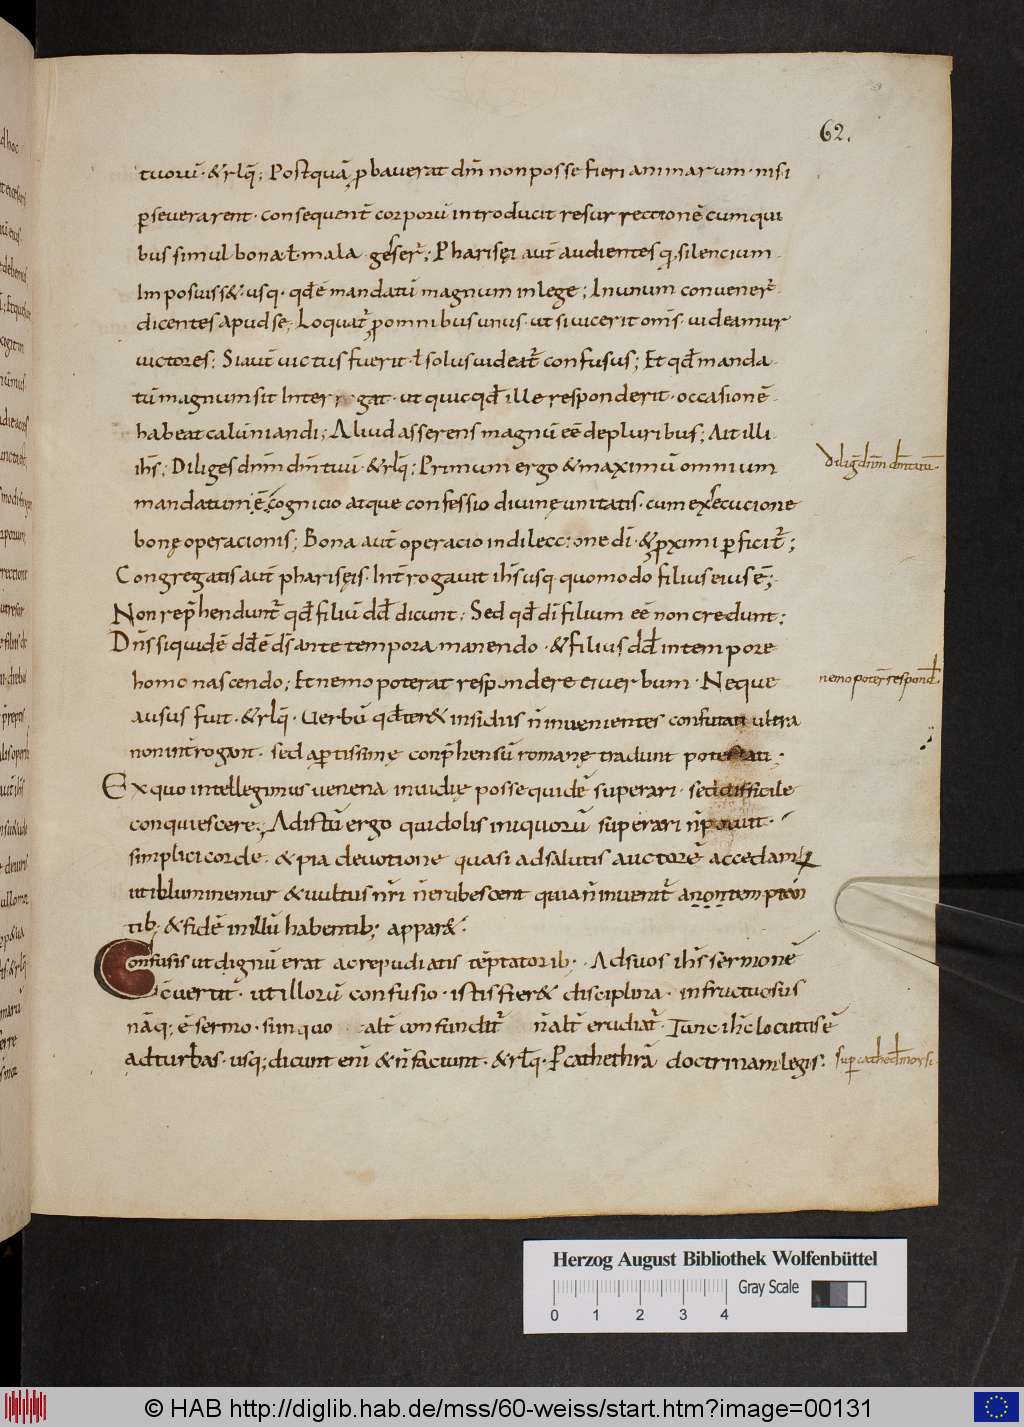 62.
tuorū · & rlq̄; Postquā ꝓbauerat dn̄i non posse fieri animarum · nisi
ꝑseuerarent · consequent̄ corporū introducit resurrectionē cum qui
bus simul bona ł mala gesser̄; Pharisęi aut̄ audientes q silencium
Imposuiss& · usq · qđ ē mandatū magnum in lege; In unum conuener̄
dicentes apud se; Loquat̄ ꝓ omnibus unus · ut si uicerit om̄s · uideamur
uictores; Si aut̄ uictus fuerit · ł solus uideat̄ confusus; Et qđ manda
tū magnum sit Interrogat · ut quicqđ ille responderit · occasionē
habeat calūniandi; Aliud asserens magnū eē de pluribus; Ait illi
ih̄s; Diliges dn̄m dm̄ tuū · & rlq̄; Primum ergo & maximū omnium
mandatum ē cognicio atque confessio diuinę unitatis · cum exsecucione
bonę operacionis; Bona aut̄ operacio in dileccione dī · & ꝓximi ꝑficit̄;
Congregatis aut̄ pharisęis · Int̄rogauit ih̄s usq · quomodo filius eius ē;
Non rep̄hendunt̄ qđ filiū dd̄ dicunt; Sed qđ dī filium eē non credunt;
Dn̄s siquidē dd̄ ē ds̄ ante tempora manendo · & filius dd̄ in tempore
homo nascendo; Et nemo poterat respondere ei uerbum · Neque
ausus fuit · & rlq̄ · Uerbū qđ ter& insidiis n̄ inuenientes confutati ultra
non int̄rogant · sed aꝑtissimę conp̄hensū romanę tradunt potestati;
Ex quo intellegimus uenena inuidię posse quidē superari · sed difficile
conquiescere; Adistū ergo qui dolis iniquorū superari n̄ potuit
simplici corde · & pia deuotione quasi ad salutis auctorē accedam
ut illuminemur & uultus nr̄i n̄ erubescent quia n̄ inuenit̄ a non temptan
tib; & fidē in illū habentib; appar&.
Confusis ut dignū erat ac repudiatis tēptatorib; · Ad suos ih̄s sermonē
cōuertit · ut illorū confusio · istis fier& disciplina · infructuosus
nāq; ē sermo · si in quo alt̄ confundit̄ n̄ alt̄ erudiat̄ · Tunc ih̄s locutus ē
ad turbas · usq; dicunt enī & n̄ faciunt · & rlq̄ · P cathethrā doctrinam legis
Diliḡ dn̄m dm̄ tuū
nemo poter̄ respond̄
suꝑ cathed̄ morsi
Herzog August Bibliothek Wolfenbüttel
Gray Scale
0 1 2 3 4
© HAB http://diglib.hab.de/mss/60-weiss/start.htm?image=00131